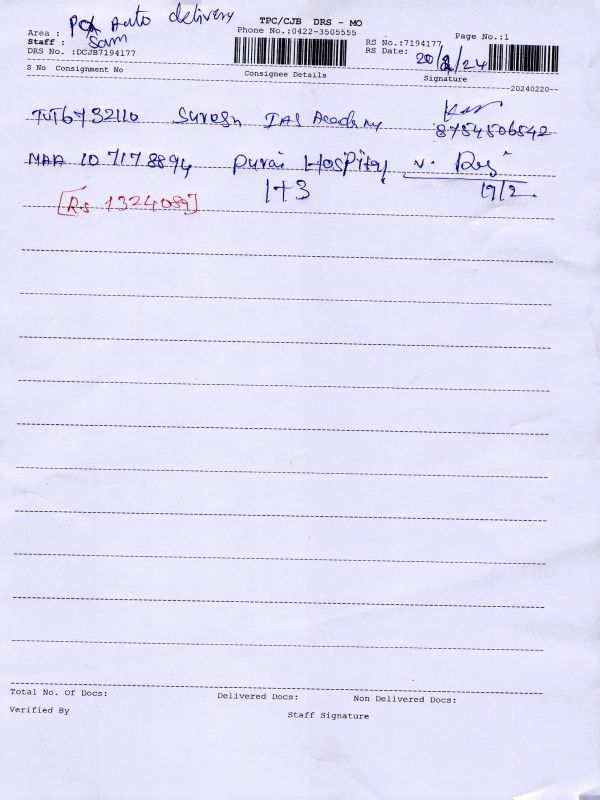 PCX Auto delivery
TPC/CJB DRS - MO
Area :
Phone No.:0422-3505555
Page No.:1
Staff : Sam
RS No.:7194177
DRS No. :DCJB7194177
RS Date: 20/2/24
S No Consignment No
Consignee Details
Signature
20240220
TUT6732110 Suresh IAS Academy 8754506542
MAA 107178894 Durai Hospital V.
1+3 19/2.
[Rs 1324089]
Total No. Of Docs:
Delivered Docs:
Non Delivered Docs:
Verified By
Staff Signature